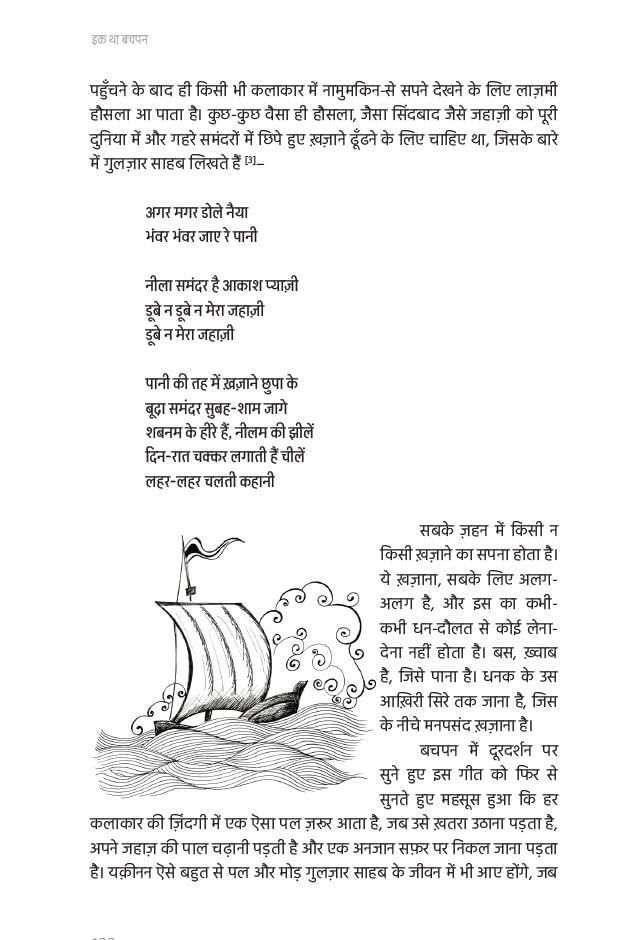 इक था बचपन
पहुँचने के बाद ही किसी भी कलाकार में नामुमकिन-से सपने देखने के लिए लाज़मी
हौसला आ पाता है। कुछ-कुछ वैसा ही हौसला, जैसा सिंदबाद जैसे जहाज़ी को पूरी
दुनिया में और गहरे समंदरों में छिपे हुए ख़ज़ाने ढूँढने के लिए चाहिए था, जिसके बारे
में गुलज़ार साहब लिखते हैं [3]–
अगर मगर डोले नैया
भंवर भंवर जाए रे पानी
नीला समंदर है आकाश प्याज़ी
डूबे न डूबे न मेरा जहाज़ी
डूबे न मेरा जहाज़ी
पानी की तह में ख़ज़ाने छुपा के
बूढ़ा समंदर सुबह-शाम जागे
शबनम के हीरे हैं, नीलम की झीलें
दिन-रात चक्कर लगाती हैं चीलें
लहर-लहर चलती कहानी
सबके ज़हन में किसी न
किसी ख़ज़ाने का सपना होता है।
ये ख़ज़ाना, सबके लिए अलग-
अलग है, और इस का कभी-
कभी धन-दौलत से कोई लेना-
देना नहीं होता है। बस, ख़्वाब
है, जिसे पाना है। धनक के उस
आख़िरी सिरे तक जाना है, जिस
के नीचे मनपसंद ख़ज़ाना है।
बचपन में दूरदर्शन पर
सुने हुए इस गीत को फिर से
सुनते हुए महसूस हुआ कि हर
कलाकार की ज़िंदगी में एक ऎसा पल ज़रूर आता है, जब उसे ख़तरा उठाना पड़ता है,
अपने जहाज़ की पाल चढ़ानी पड़ती है और एक अनजान सफ़र पर निकल जाना पड़ता
है। यक़ीनन ऎसे बहुत से पल और मोड़ गुलज़ार साहब के जीवन में भी आए होंगे, जब